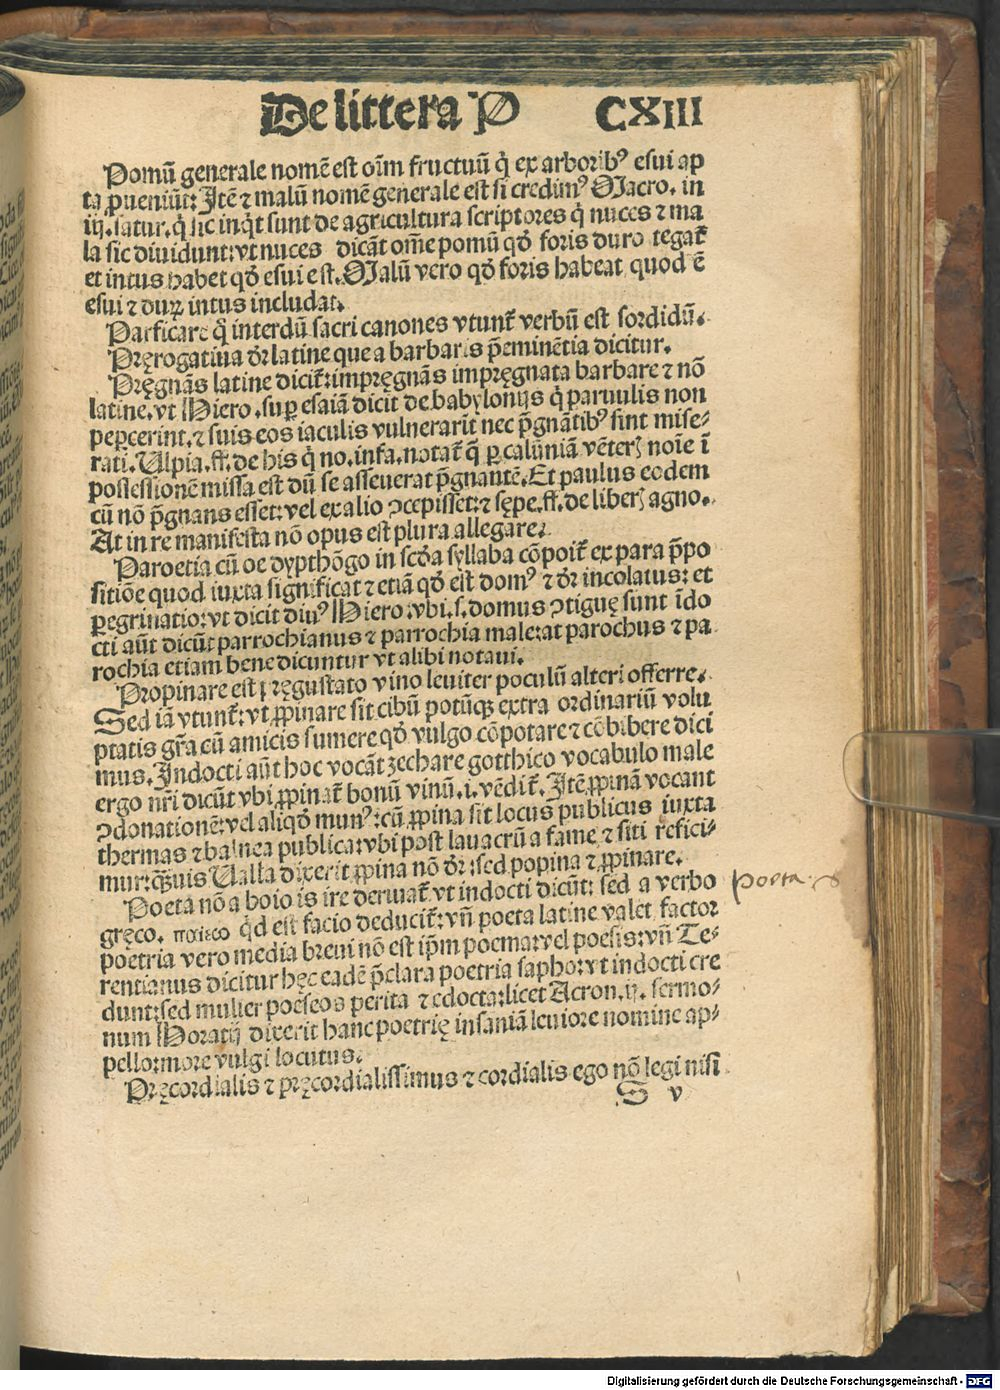 De littera P CXIII
Pomū generale nomē est oīm fructuū q̇ ex arborib⁹ esui ap
ta ꝓueniūt: Itē ⁊ malū nomē generale est si credim⁹ Macro. in
iij. satur. q̇ sic inq̇t sunt de agricultura scriptores q̇ nuces ⁊ ma
la sic diuidunt: vt nuces dicāt om̄e pomū qđ foris duro tegat̄
et intus habet qđ esui est. Malū vero qđ foris habeat quod ē
esui ⁊ duꝝ intus includat.
Pacificare q̇ interdū sacri canones vtunt̄ verbū est sordidū.
Pręrogatiua dr̄ latine que a barbaris p̄eminētia dicitur.
Pręgnās latine dicit̄: impręgnās impręgnata barbare ⁊ nō
latine. vt Hiero. suꝑ esaiā dicit de babylonijs q̇ paruulis non
peꝑcerint. ⁊ suis eos iaculis vulnerarit nec p̄gnātib⁹ sint mise-
rati. Ulpia. ff. de his q̇ no. infa. notat̄ q̄ ꝑ calūniā vēterꝭ noīe ī
possessionē missa est dū se asseuerat p̄gnantē. Et paulus eodem
cū nō p̄gnans esset: vel ex alio ꝯcepisset: ⁊ sępe. ff. de liberꝭ agno.
At in re manifesta nō opus est plura allegare.
Paroetia cū oe dypthōgo in scđa syllaba cōpoīt̄ ex para p̄po
sitiōe quod iuxta significat ⁊ etiā qđ est dom⁹ ⁊ dr̄ incolatus: et
ꝑegrinatio: vt dicit diu⁹ Hiero. vbi. s. domus ꝯtiguę sunt īdo
cti aūt dicūt parrochianus ⁊ parrochia male: at parochus ⁊ pa
rochia etiam bene dicuntur vt alibi notaui.
Propinare est pręgustato vino leuiter poculū alteri offerre.
Sed iā vtunt̄: vt ꝓpinare sit cibū potūqꝫ extra ordinariū volu
ptatis gr̄a cū amicis sumere qđ vulgo cōpotare ⁊ cōbibere dici
mus. Indocti aūt hoc vocāt zechare gotthico vocabulo male
ergo nr̄i dicūt vbi ꝓpinat̄ bonū vinū. i. vēdit̄. Itē ꝓpinā vocant
ꝯdonationē: vel aliqđ mun⁹: cū ꝓpina sit locus publicus iuxta
thermas ⁊ balnea publica: vbi post lauacrū a fame ⁊ siti refici-
mur: q̄ꝫuis Ualla dixerit ꝓpina nō dr̄: sed popina ⁊ ꝓpinare.
Poeta nō a boio is ire deriuat̄ vt indocti dicūt: sed a verbo
gręco. ποιεω qđ est facio deducit̄: vn̄ poeta latine valet factor
poetria vero media breui nō est ip̄m poema: vel poesis: vn̄ Te-
rentianus dicitur hęc eadē p̄clara poetria sapho: vt indocti cre
dunt: sed mulier poeseos perita ⁊ edocta: licet Acron. ij. sermo-
num Horatij dixerit hanc poetrię insaniā leuiore nomine ap-
pello: more vulgi locutus.
Pręcordialis ⁊ pręcordialissimus ⁊ cordialis ego nō legi nisi
S v
poeta.
Digitalisierung gefördert durch die Deutsche Forschungsgemeinschaft - DFG